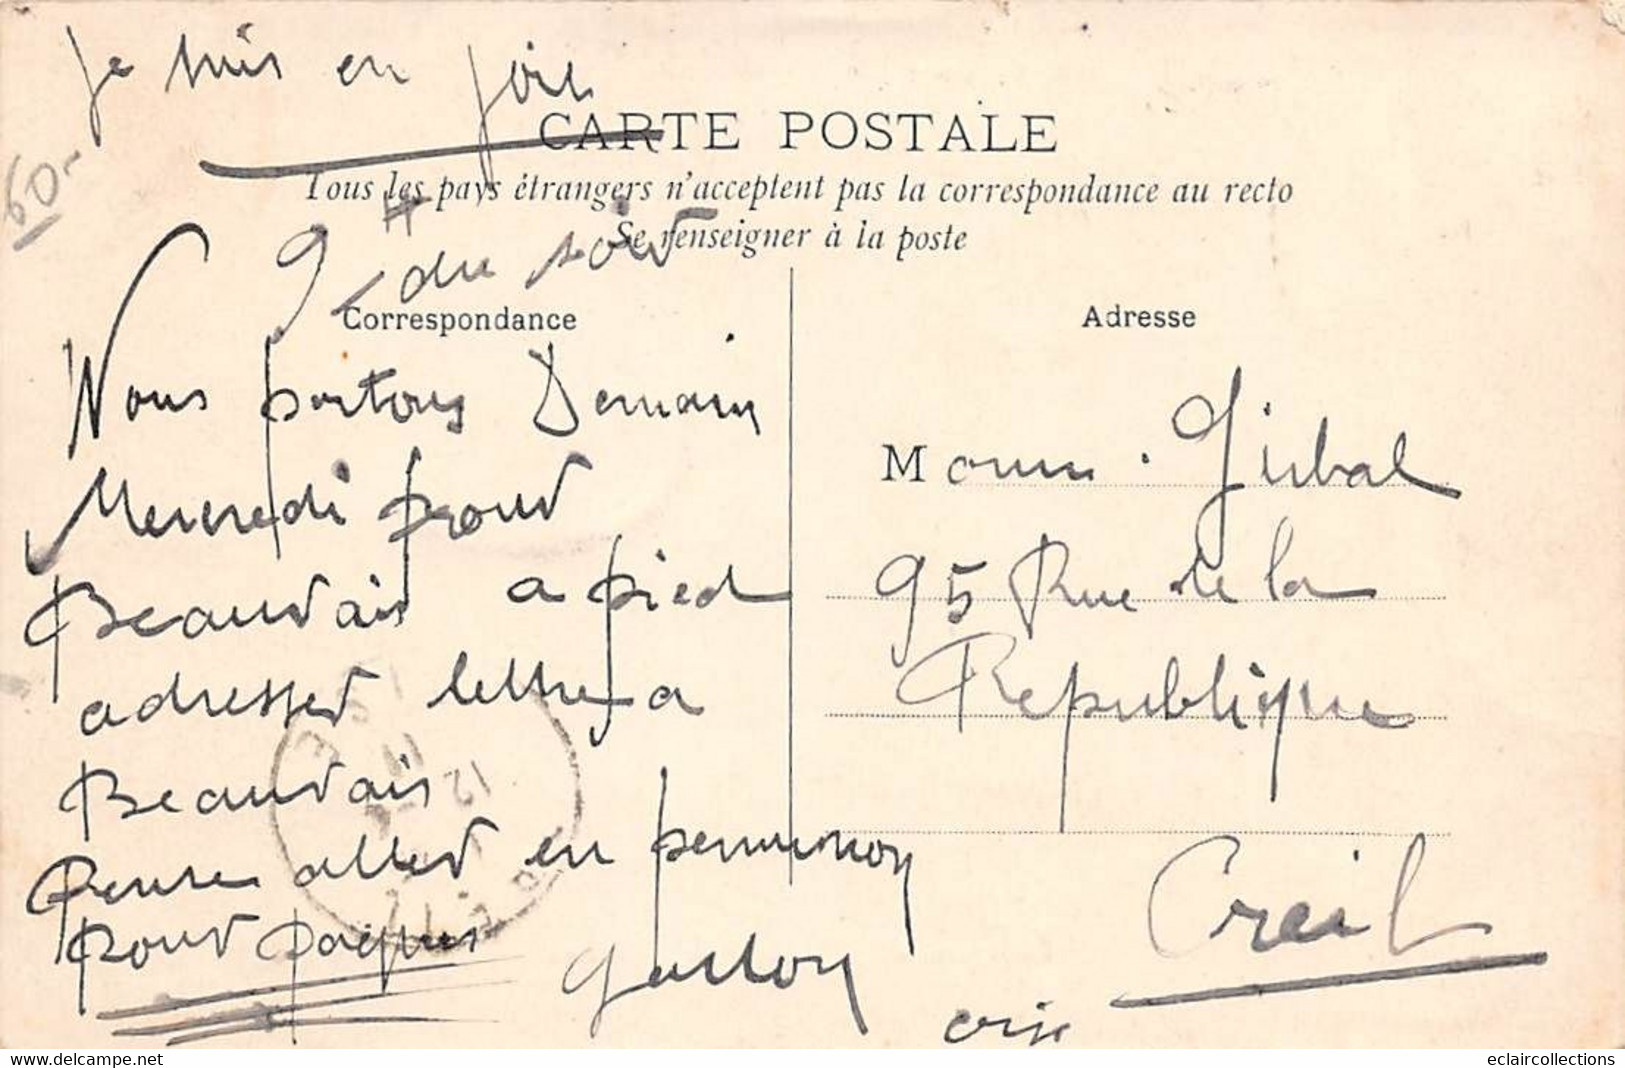 Je suis en joie
CARTE POSTALE
Tous les pays étrangers n'acceptent pas la correspondance au recto
Se renseigner à la poste
60-
9 H du soir
Correspondance
Adresse
Nous partons Demain
Mercredi pour
Beauvais a pied
adresser lettre a
Beauvais
Pense aller en permission
pour paques
Gaston
M Girbal
95 Rue de la
Republique
Creil
oise
12
eclaircollections